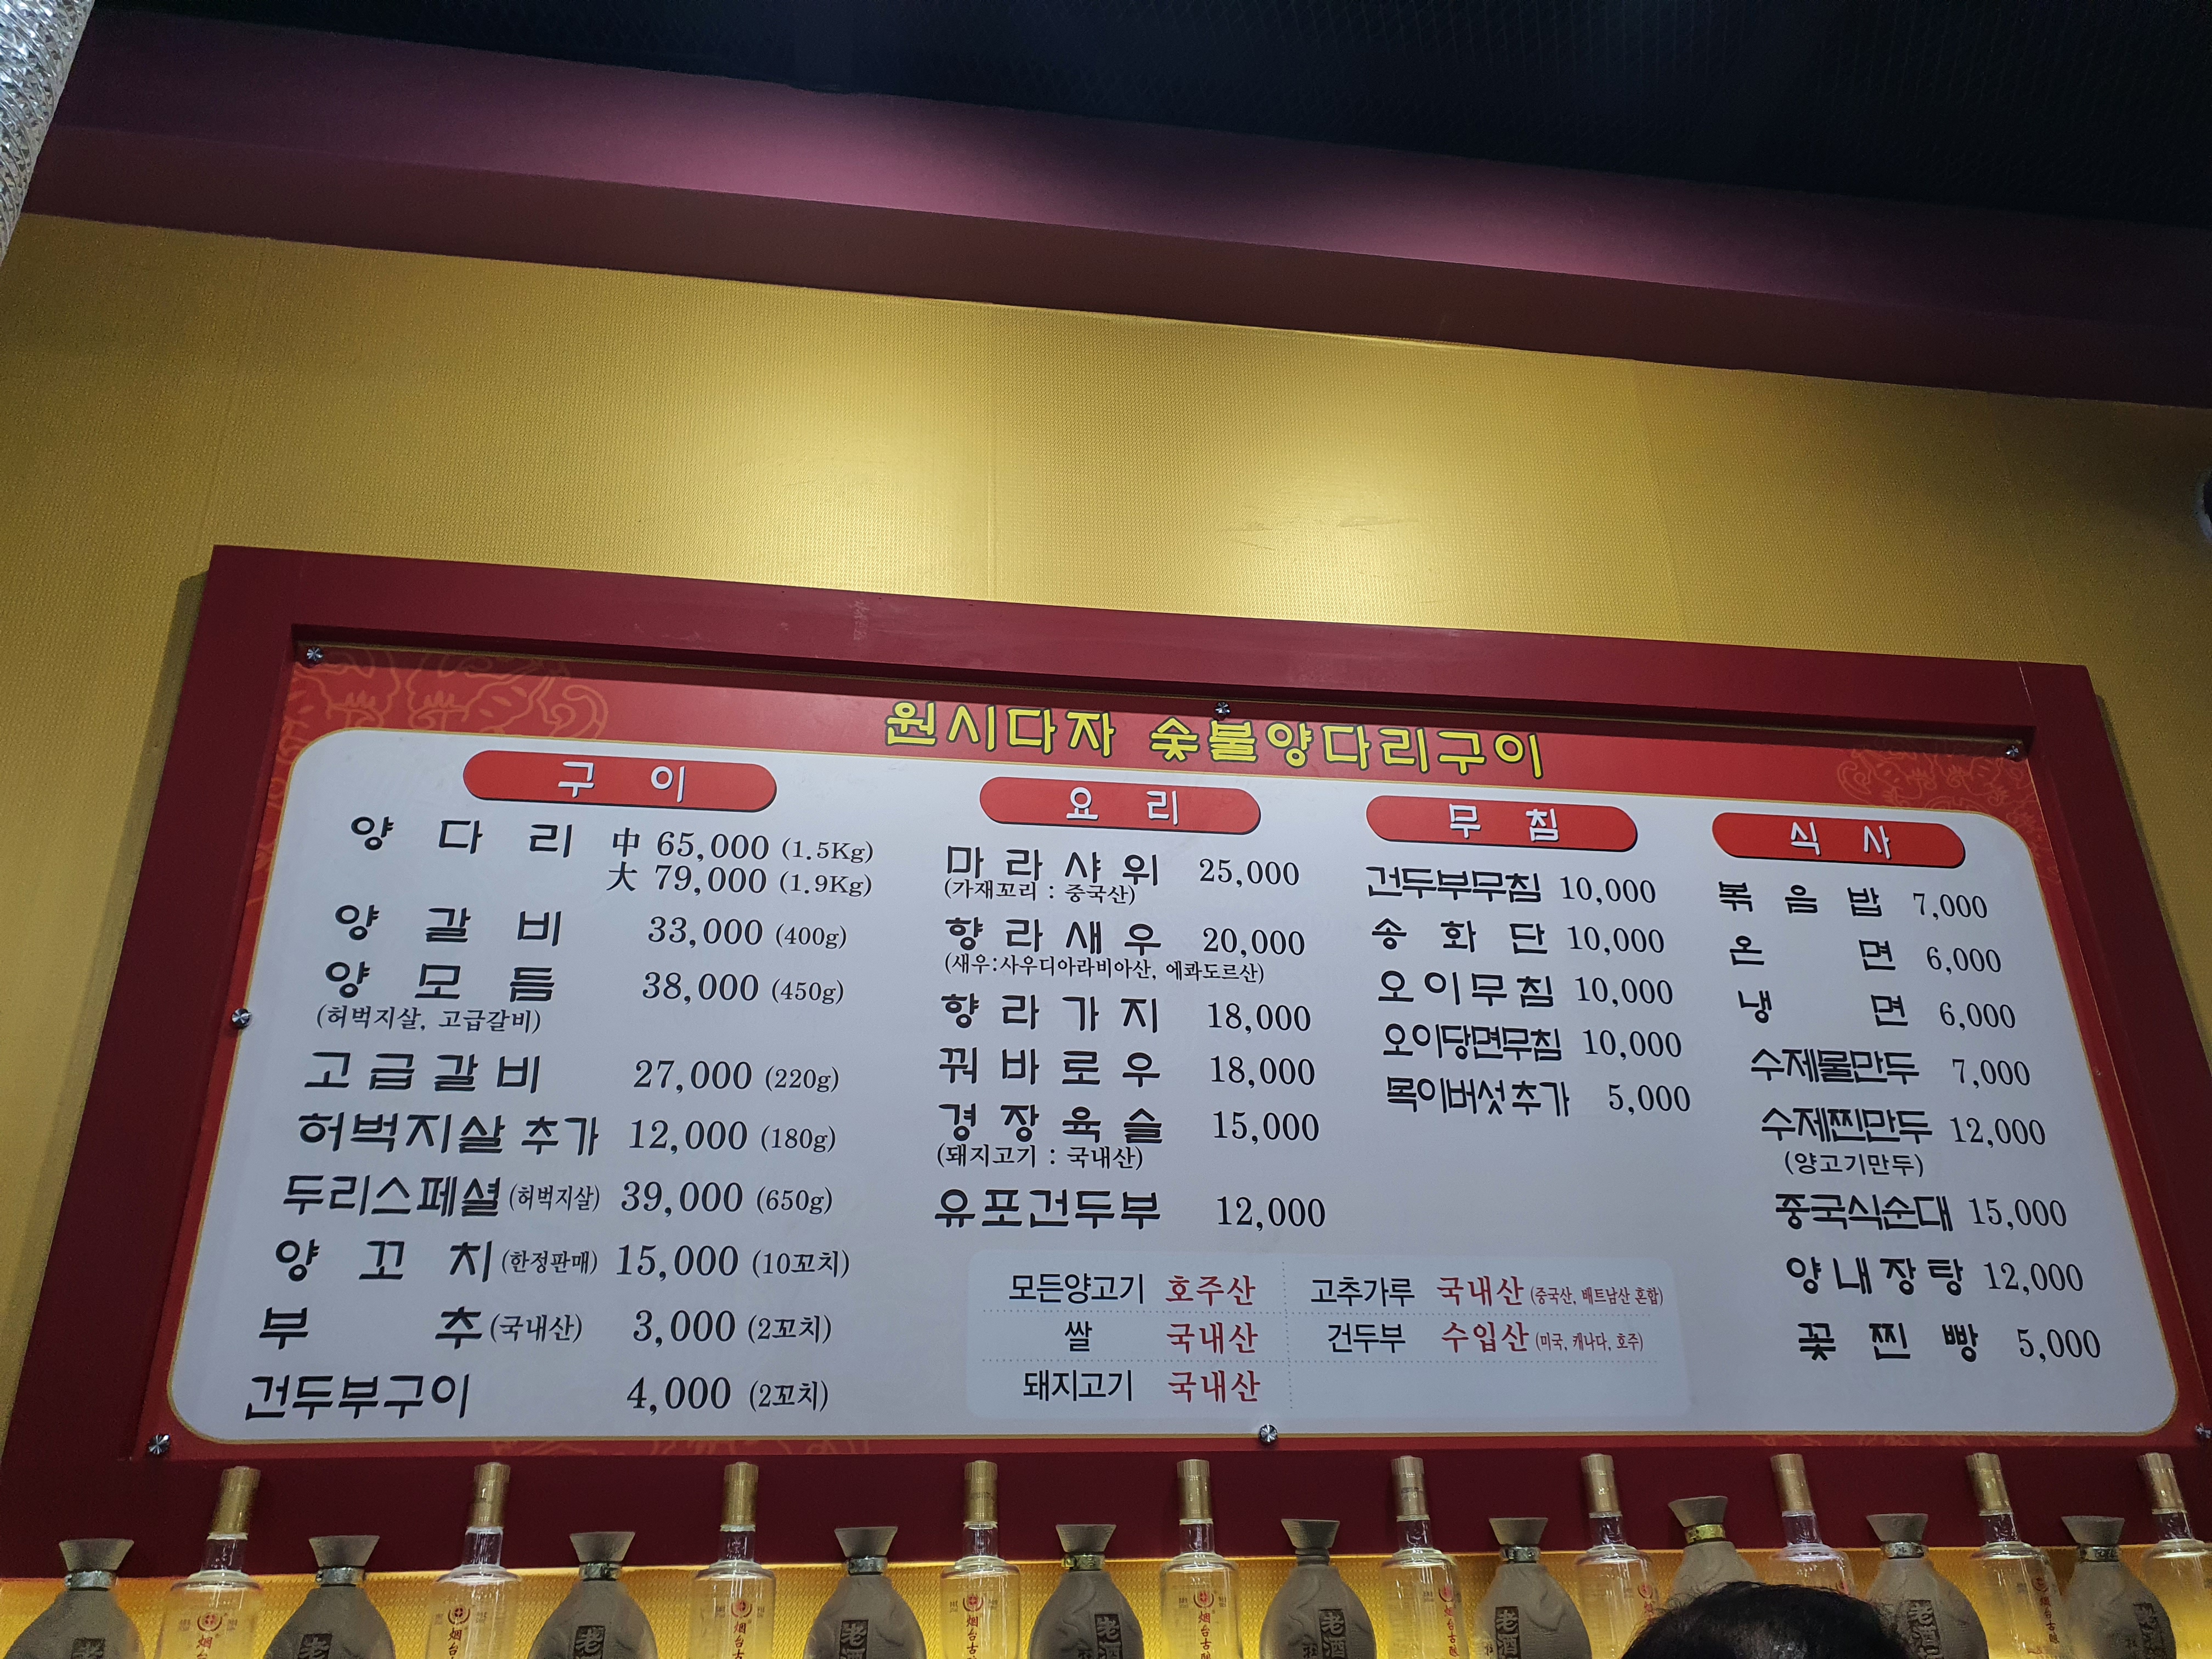 원시다자 숯불양다리구이
구이
양다리 中 65,000 (1.5Kg)
大 79,000 (1.9Kg)
양갈비 33,000 (400g)
양모듬 38,000 (450g)
(허벅지살, 고급갈비)
고급갈비 27,000 (220g)
허벅지살 추가 12,000 (180g)
두리스페셜 (허벅지살) 39,000 (650g)
양꼬치 (한정판매) 15,000 (10꼬치)
부추 (국내산) 3,000 (2꼬치)
건두부구이 4,000 (2꼬치)
요리
마라샤워 25,000
(가재꼬리 : 중국산)
향라새우 20,000
(새우:사우디아라비아산, 에콰도르산)
향라가지 18,000
꿔바로우 18,000
경장육슬 15,000
(돼지고기 : 국내산)
유포건두부 12,000
무침
건두부무침 10,000
송화단 10,000
오이무침 10,000
오이당면무침 10,000
목이버섯추가 5,000
식사
볶음밥 7,000
온면 6,000
냉면 6,000
수제물만두 7,000
수제찐만두 12,000
(양고기만두)
중국식순대 15,000
양내장탕 12,000
꽃찐빵 5,000
모든양고기 호주산 고추가루 국내산 (중국산, 베트남산 혼합)
쌀 국내산 건두부 수입산 (미국, 캐나다, 호주)
돼지고기 국내산
烟台古酿
老酒